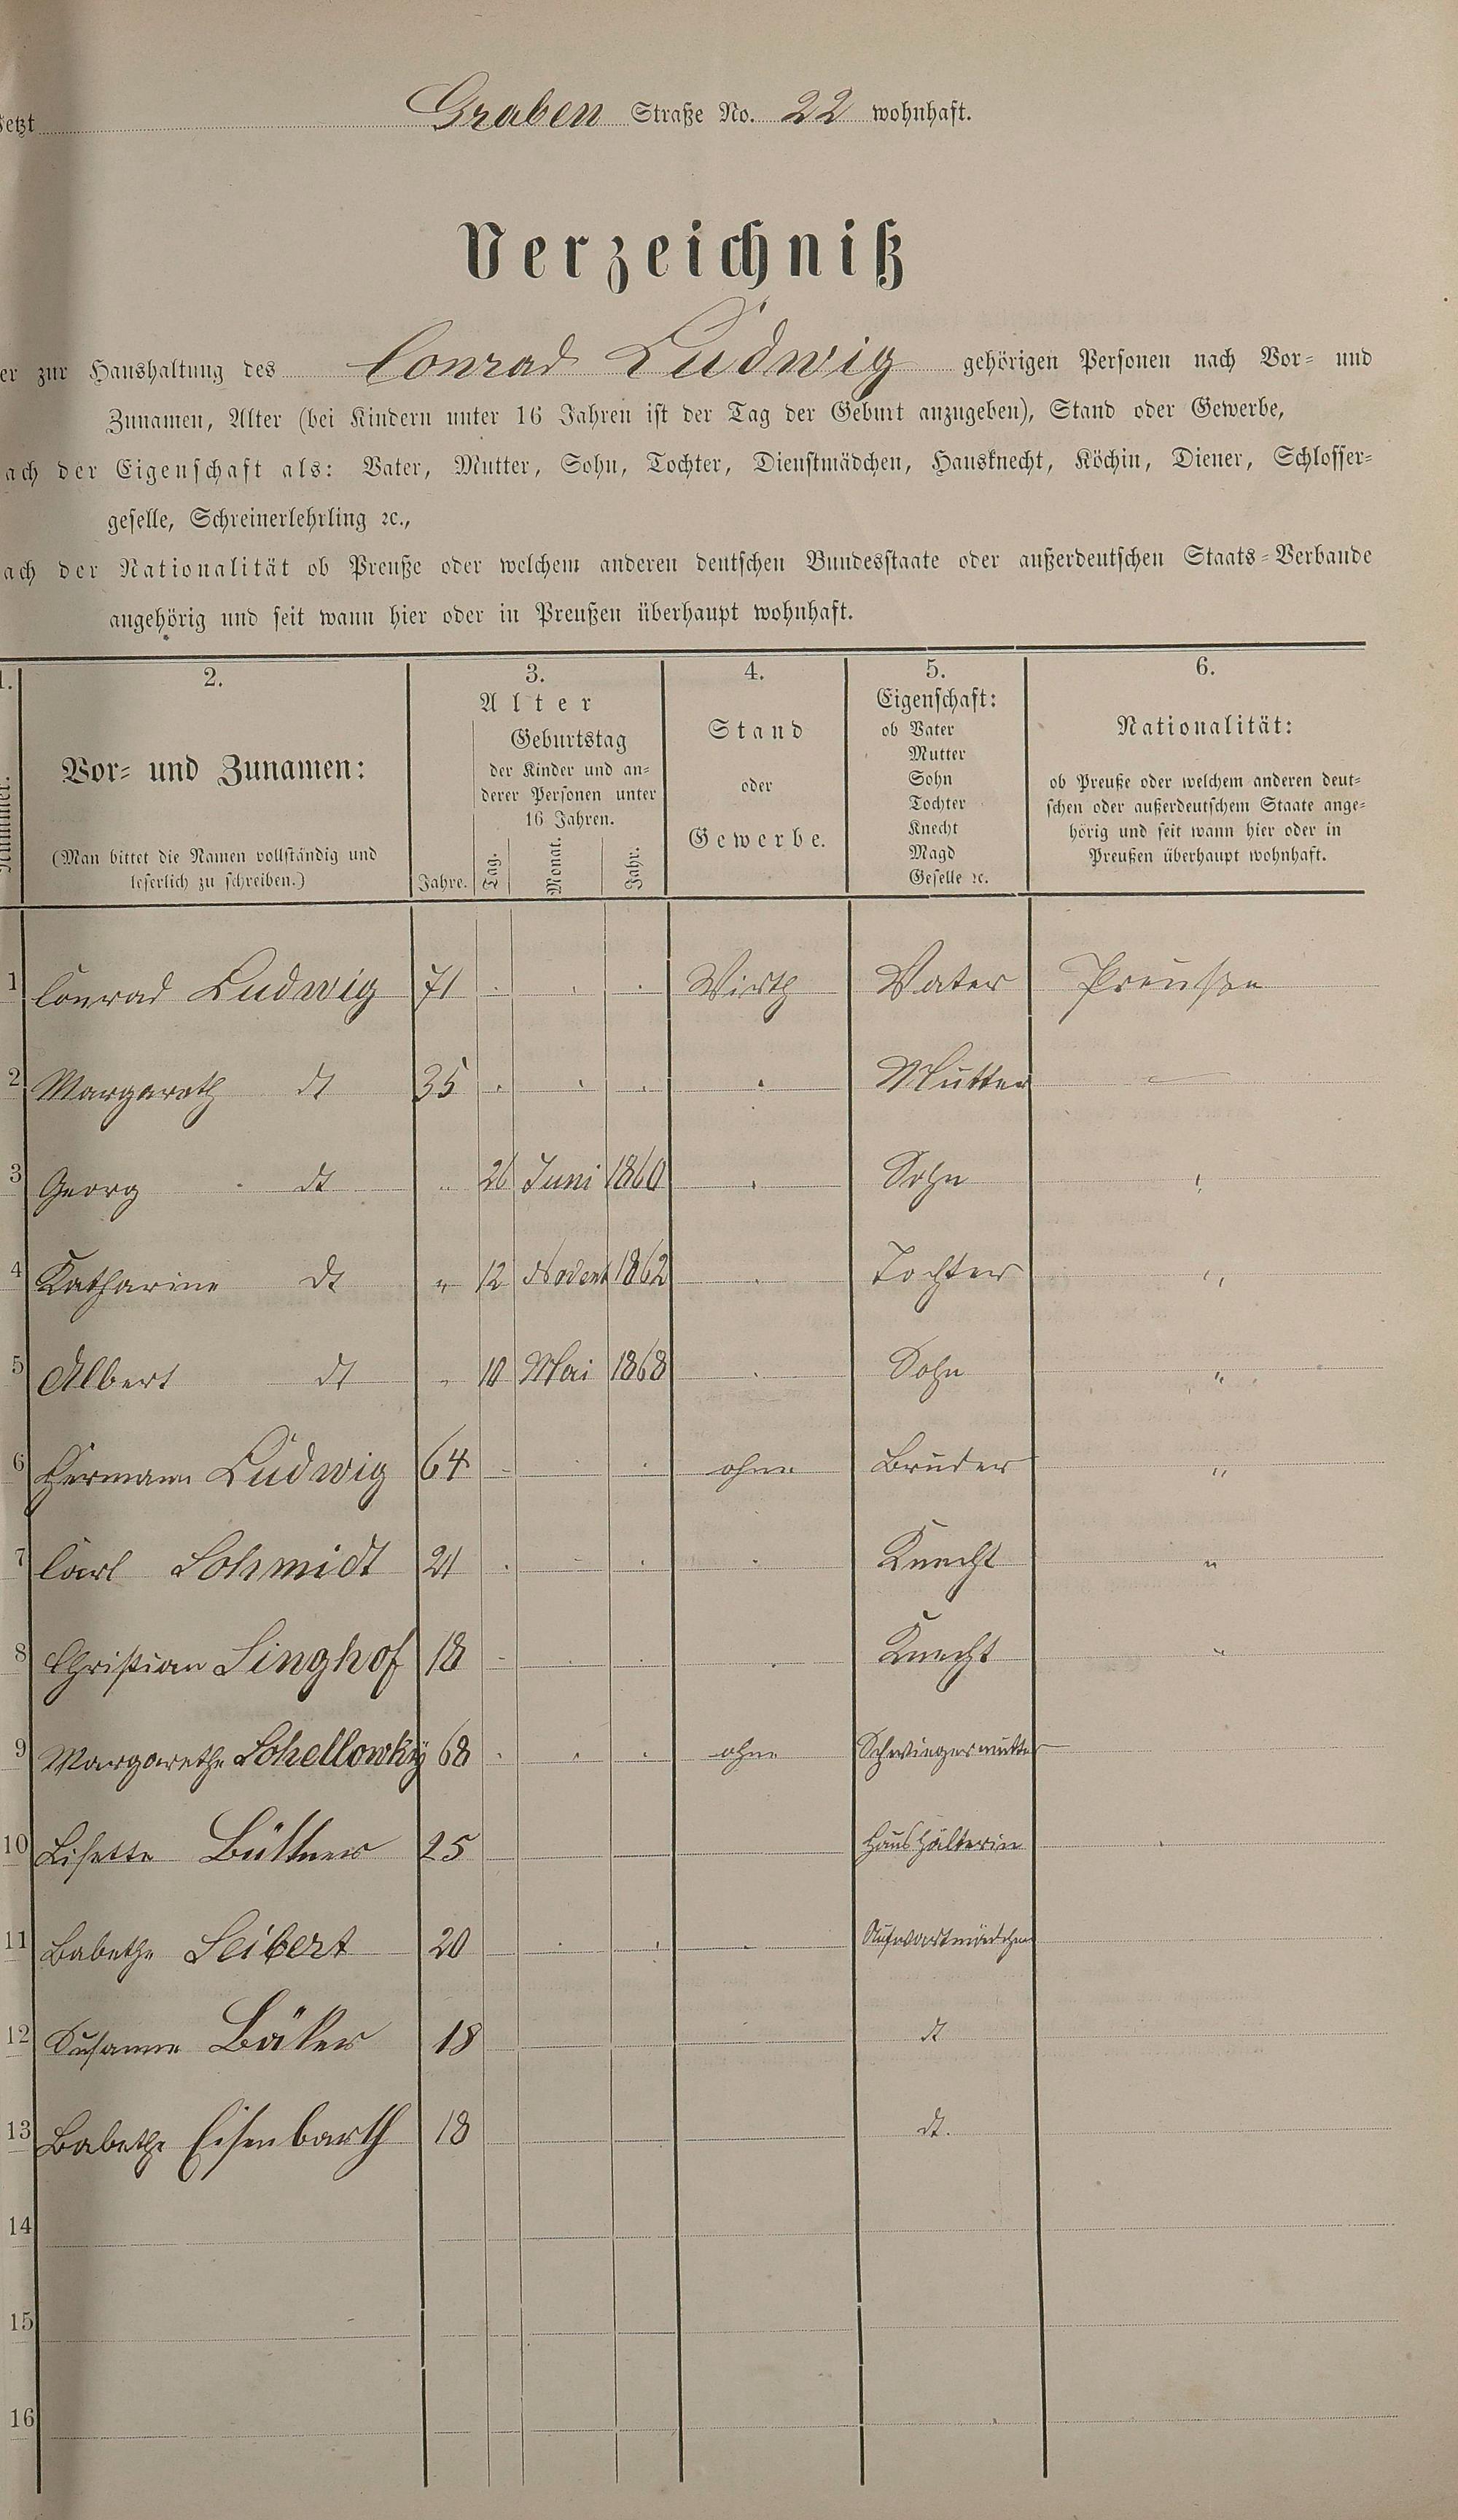 Jetzt Graben Straße No. 22 wohnhaft.
Verzeichniß
er zur Haushaltung des Conrad Ludwig gehörigen Personen nach Vor- und
Zunamen, Alter (bei Kindern unter 16 Jahren ist der Tag der Geburt anzugeben), Stand oder Gewerbe,
ach der Eigenschaft als: Vater, Mutter, Sohn, Tochter, Dienstmädchen, Hausknecht, Köchin, Diener, Schlosser-
geselle, Schreinerlehrling ꝛc.,
ach der Nationalität ob Preuße oder welchem anderen deutschen Bundesstaate oder außerdeutschen Staats-Verbande
angehörig und seit wann hier oder in Preußen überhaupt wohnhaft.
1. 2. 3. 4. 5. 6.
Nummer.
Vor- und Zunamen:
(Man bittet die Namen vollständig und
leserlich zu schreiben.)
Alter
Jahre.
Geburtstag
der Kinder und an-
derer Personen unter
16 Jahren.
Tag. Monat. Jahr.
Stand
oder
Gewerbe.
Eigenschaft:
ob Vater
Mutter
Sohn
Tochter
Knecht
Magd
Geselle ꝛc.
Nationalität:
ob Preuße oder welchem anderen deut-
schen oder außerdeutschem Staate ange-
hörig und seit wann hier oder in
Preußen überhaupt wohnhaft.
1 Conrad Ludwig 71 Wirth Vater Preußen
2 Margareth dt 35 Mutter
3 Georg dt " 26 Juni 1860 Sohn "
4 Katharine dt " 12 Novemb 1862 Tochter "
5 Albert dt " 10 Mai 1868 Sohn "
6 Hermann Ludwig 64 ohne Bruder "
7 Carl Schmidt 21 Knecht "
8 Christian Singhof 18 Knecht "
9 Margarethe Schellowky 68 ohne Schwiegermutter
10 Lisette Büttner 25 Haushälterin
11 Babethe Seibert 20 Aufwartmädchen
12 Susanne Bäker 18 dt
13 Babethe Eisenbarth 18 dt.
14
15
16